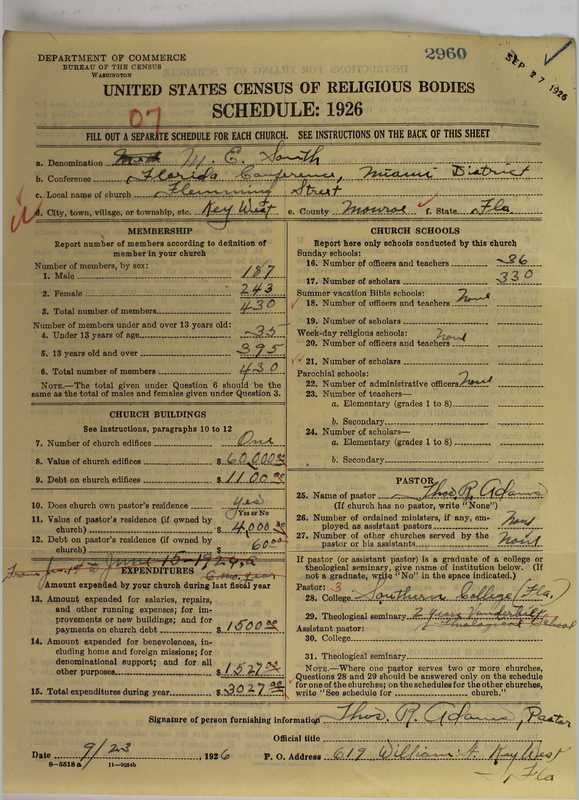 DEPARTMENT OF COMMERCE
BUREAU OF THE CENSUS
WASHINGTON
2960
SEP 27 1926
UNITED STATES CENSUS OF RELIGIOUS BODIES
SCHEDULE: 1926
07
FILL OUT A SEPARATE SCHEDULE FOR EACH CHURCH. SEE INSTRUCTIONS ON THE BACK OF THIS SHEET
a. Denomination M. E. South
b. Conference Florida Conference, Miami District
c. Local name of church Flemming Street
d. City, town, village, or township, etc. Key West e. County Monroe f. State Fla
MEMBERSHIP
Report number of members according to definition of member in your church
Number of members, by sex:
1. Male 187
2. Female 243
3. Total number of members 430
Number of members under and over 13 years old:
4. Under 13 years of age 35
5. 13 years old and over 395
6. Total number of members 430
NOTE.—The total given under Question 6 should be the same as the total of males and females given under Question 3.
CHURCH BUILDINGS
See instructions, paragraphs 10 to 12
7. Number of church edifices One
8. Value of church edifices $ 60,000.00
9. Debt on church edifices $ 1100.00
10. Does church own pastor's residence? yes
Yes or No
11. Value of pastor's residence (if owned by church) $ 4,000.00
12. Debt on pastor's residence (if owned by church) $ 60.00
From Jan. 1st to June 15-1926
6 mo. year
EXPENDITURES
Amount expended by your church during last fiscal year
13. Amount expended for salaries, repairs, and other running expenses; for improvements or new buildings; and for payments on church debt $ 1500.00
14. Amount expended for benevolences, including home and foreign missions; for denominational support; and for all other purposes $ 1527.00
15. Total expenditures during year $ 3027.00
CHURCH SCHOOLS
Report here only schools conducted by this church
Sunday schools:
16. Number of officers and teachers 36
17. Number of scholars 330
Summer vacation Bible schools:
18. Number of officers and teachers None
19. Number of scholars
Week-day religious schools: None
20. Number of officers and teachers
21. Number of scholars
Parochial schools:
22. Number of administrative officers None
23. Number of teachers—
a. Elementary (grades 1 to 8)
b. Secondary
24. Number of scholars—
a. Elementary (grades 1 to 8)
b. Secondary
PASTOR
25. Name of pastor Thos. R. Adams
(If church has no pastor, write "None")
26. Number of ordained ministers, if any, employed as assistant pastors None
27. Number of other churches served by the pastor or his assistants None
If pastor (or assistant pastor) is a graduate of a college or theological seminary, give name of institution below. (If not a graduate, write "No" in the space indicated.)
Pastor: 3
28. College Southern College (Fla.)
29. Theological seminary 2 years Vanderbilt Theological School
Assistant pastor:
30. College
31. Theological seminary
NOTE.—Where one pastor serves two or more churches, Questions 28 and 29 should be answered only on the schedule for one of the churches; on the schedules for the other churches, write "See schedule for church."
Signature of person furnishing information Thos. R. Adams, Pastor
Official title
Date 9/23, 1926 P. O. Address 619 William St. Key West Fla
8—5518 a 11—9034b